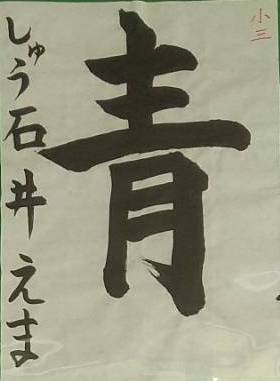 小三
青
しゅう石井えま